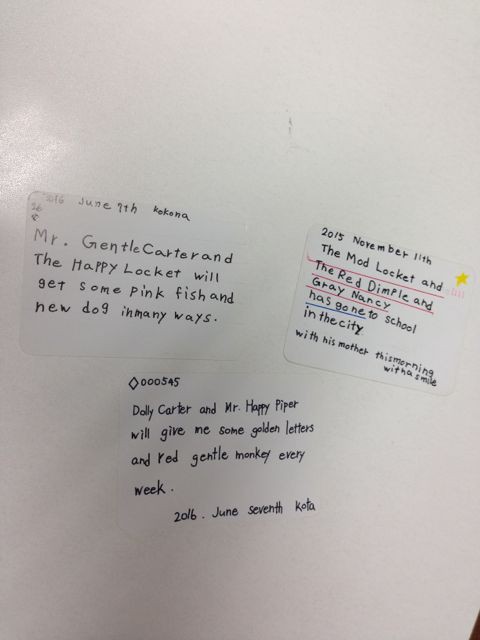 2016 June 7th kokona
Mr. Gentle Carter and
The Happy Locket will
get some pink fish and
new dog in many ways.
2015 November 11th
The Mod Locket and
The Red Dimple and
Gray Nancy
has gone to school
in the city
with his mother this morning
with a smile
◇000545
Dolly Carter and Mr. Happy Piper
will give me some golden letters
and red gentle monkey every
week.
2016. June seventh kota